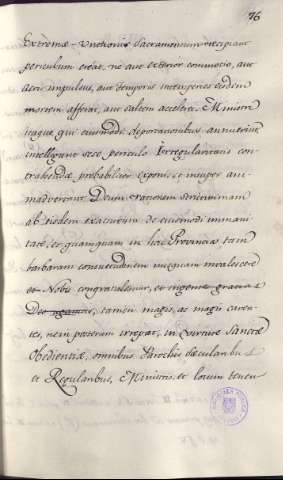 76
Extremæ-Unctionis Sacramentum recipiant
periculum creat, ne aut exterior commotio, aut
aeris impulsus, aut temporis intemperies eisdem
mortem afferat, aut saltem acceleret. Ministri
itaque qui eiusmodi deportationibus annuerint,
intelligant sese periculo Irregularitatis con-
trahendæ probabiliter exponi, et insuper ani-
madvertant Deum rationem strictissimam
ab eisdem exacturum de eiusmodi immani
tate, et quamquam in hac Provincia tam
barbaram consuetudinem nusquam invaluisse
et Nobis congratulemur, et
tamen magis, ac magis caven-
tes, ne in posterum irrepat, in virtute Sanctæ
Obedientiæ, omnibus Parochis sæcularibus
et Regularibus, Ministris, et locum tenen